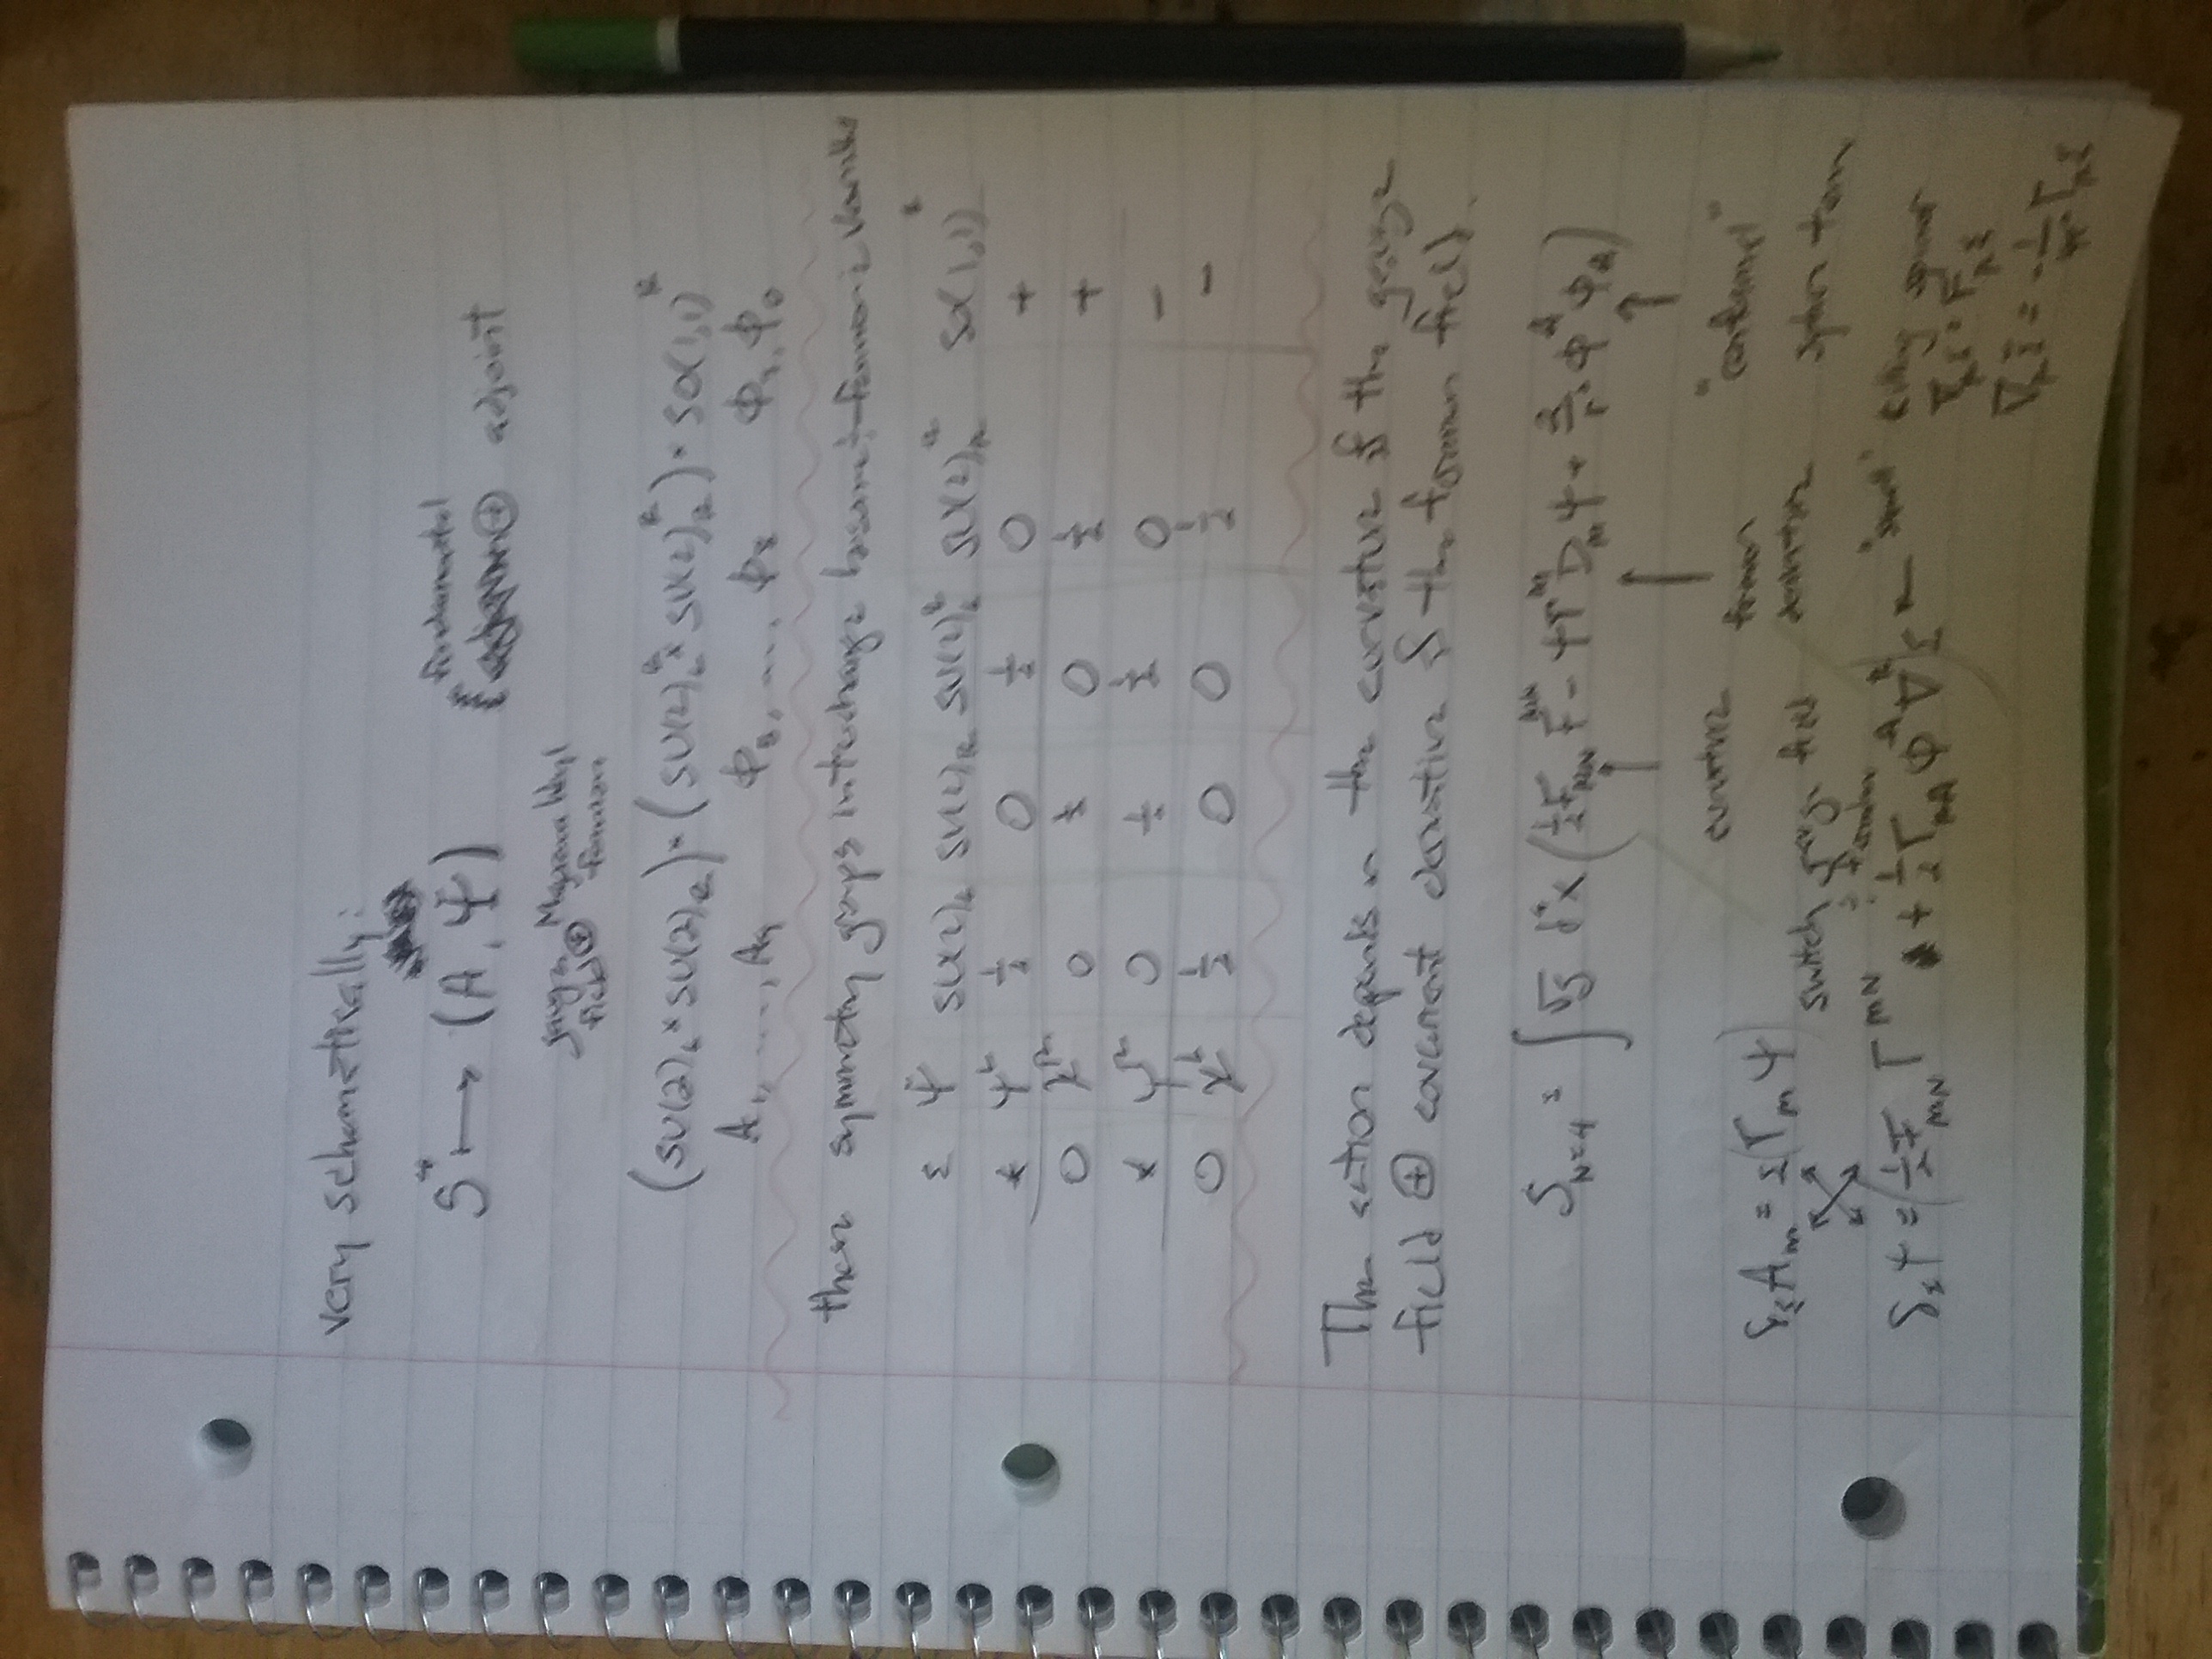 very schematically:
S⁴ ↦ (A, Ψ)
fundamental
⊕ adjoint
gauge field ⊕ Majorana Weyl fermion
(SU(2)_L × SU(2)_R) × (SU(2)_L^R × SU(2)_R^R) × SO(1,1)^R
A₁, ...., A₄ Φ₅, ..., Φ₈ Φ₉, Φ₀
these symmetry groups interchange bosonic + fermionic variables
ε Ψ SU(2)_L SU(2)_R SU(2)_L^R SU(2)_R^R SO(1,1)^R
* ψ^L 1/2 0 1/2 0 +
0 χ^R 0 1/2 0 1/2 +
* ψ^R 0 1/2 1/2 0 −
0 χ^L 1/2 0 0 1/2 −
The action depends on the curvature of the gauge
field ⊕ covariant derivative of the fermion field.
S_{N=4} = ∫ √g d⁴x (½ F_{MN} F^{MN} − ΨΓ^M D_M Ψ + 2/r² Φ^A Φ_A)
curvature
fermion derivative
"conformal" sphere term
δ_ε A_M = ε(Γ_M Ψ)
switch gauge field
: fermion
δ_ε Ψ = (½ F_{MN} Γ^{MN} + ½ Γ_{μA} Φ^A ∇^μ) ε ← Killing spinor
∇_μ ε = Γ_μ ε̃
∇_μ ε̃ = − Γ_μ ε